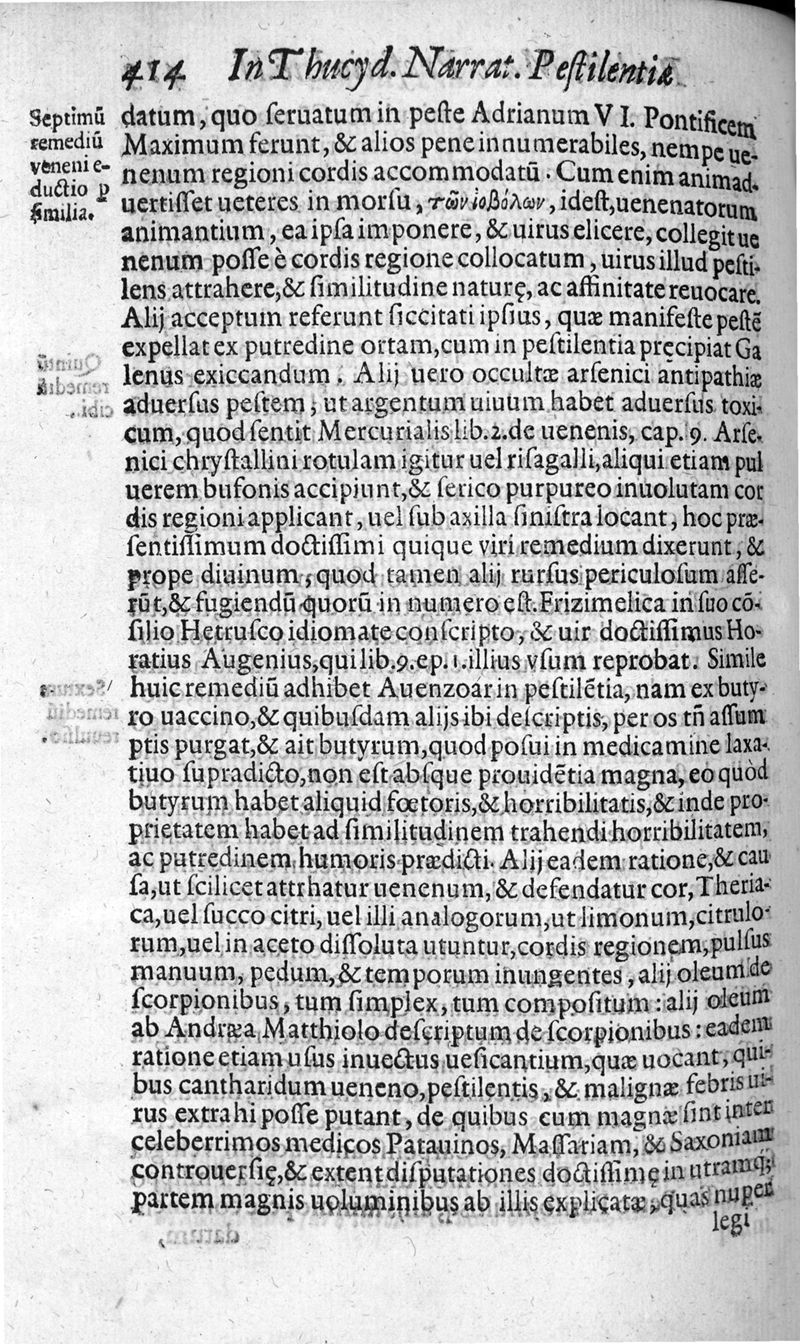 414 In Thucyd. Narrat. Peſtilentiæ
Septimũ
remediũ
veneni e-
ductio p
ſimilia.
datum, quo ſeruatum in peſte Adrianum VI. Pontificem
Maximum ferunt, & alios pene innumerabiles, nempe ue-
nenum regioni cordis accommodatũ. Cum enim animad-
uertiſſet ueteres in morſu, τῶν ἰοβόλων, ideſt, uenenatorum
animantium, ea ipſa imponere, & uirus elicere, collegit ue
nenum poſſe è cordis regione collocatum, uirus illud peſti-
lens attrahere, & ſimilitudine naturę, ac affinitate reuocare.
Alij acceptum referunt ſiccitati ipſius, quæ manifeſte peſtẽ
expellat ex putredine ortam, cum in peſtilentia pręcipiat Ga
lenus exiccandum. Alij uero occultæ arſenici antipathiæ
aduerſus peſtem, ut argentum uiuum habet aduerſus toxi-
cum, quod ſentit Mercurialis lib. 2. de uenenis, cap. 9. Arſe-
nici chryſtallini rotulam igitur uel riſagalli, aliqui etiam pul
uerem bufonis accipiunt, & ſerico purpureo inuolutam cor
dis regioni applicant, uel ſub axilla ſiniſtra locant, hoc præ-
ſentiſſimum doctiſſimi quique viri remedium dixerunt, &
prope diuinum, quod tamen alij rurſus periculoſum aſſe-
rũt, & fugiendũ quorũ in numero eſt. Frizimelica in ſuo cõ-
ſilio Hetruſco idiomate conſcripto, & uir doctiſſimus Ho-
ratius Augenius, qui lib. 9. ep. 1. illius vſum reprobat. Simile
huic remediũ adhibet Auenzoar in peſtilẽtia, nam ex buty-
ro uaccino, & quibuſdam alijs ibi deſcriptis, per os tñ aſſum
ptis purgat, & ait butyrum, quod poſui in medicamine laxa-
tiuo ſupradicto, non eſt abſque prouidẽtia magna, eo quòd
butyrum habet aliquid fœtoris, & horribilitatis, & inde pro-
prietatem habet ad ſimilitudinem trahendi horribilitatem,
ac putredinem humoris prædicti. Alij eadem ratione, & cau
ſa, ut ſcilicet attrhatur uenenum, & defendatur cor, Theria-
ca, uel ſucco citri, uel illi analogorum, ut limonum, citrulo-
rum, uel in aceto diſſoluta utuntur, cordis regionem, pulſus
manuum, pedum, & temporum inungentes, alij oleum de
ſcorpionibus, tum ſimplex, tum compoſitum: alij oleum
ab Andræa Matthiolo deſcriptum de ſcorpionibus: eadem
ratione etiam uſus inuectus ueſicantium, quæ uocant, qui-
bus cantharidum ueneno, peſtilentis, & malignæ febris ui-
rus extrahi poſſe putant, de quibus cum magnæ ſint inter
celeberrimos medicos Patauinos, Maſſariam, & Saxoniam
controuerſię, & extent diſputationes doctiſſimę in utramq;
partem magnis uoluminibus ab illis explicatæ, quas nuper
legi